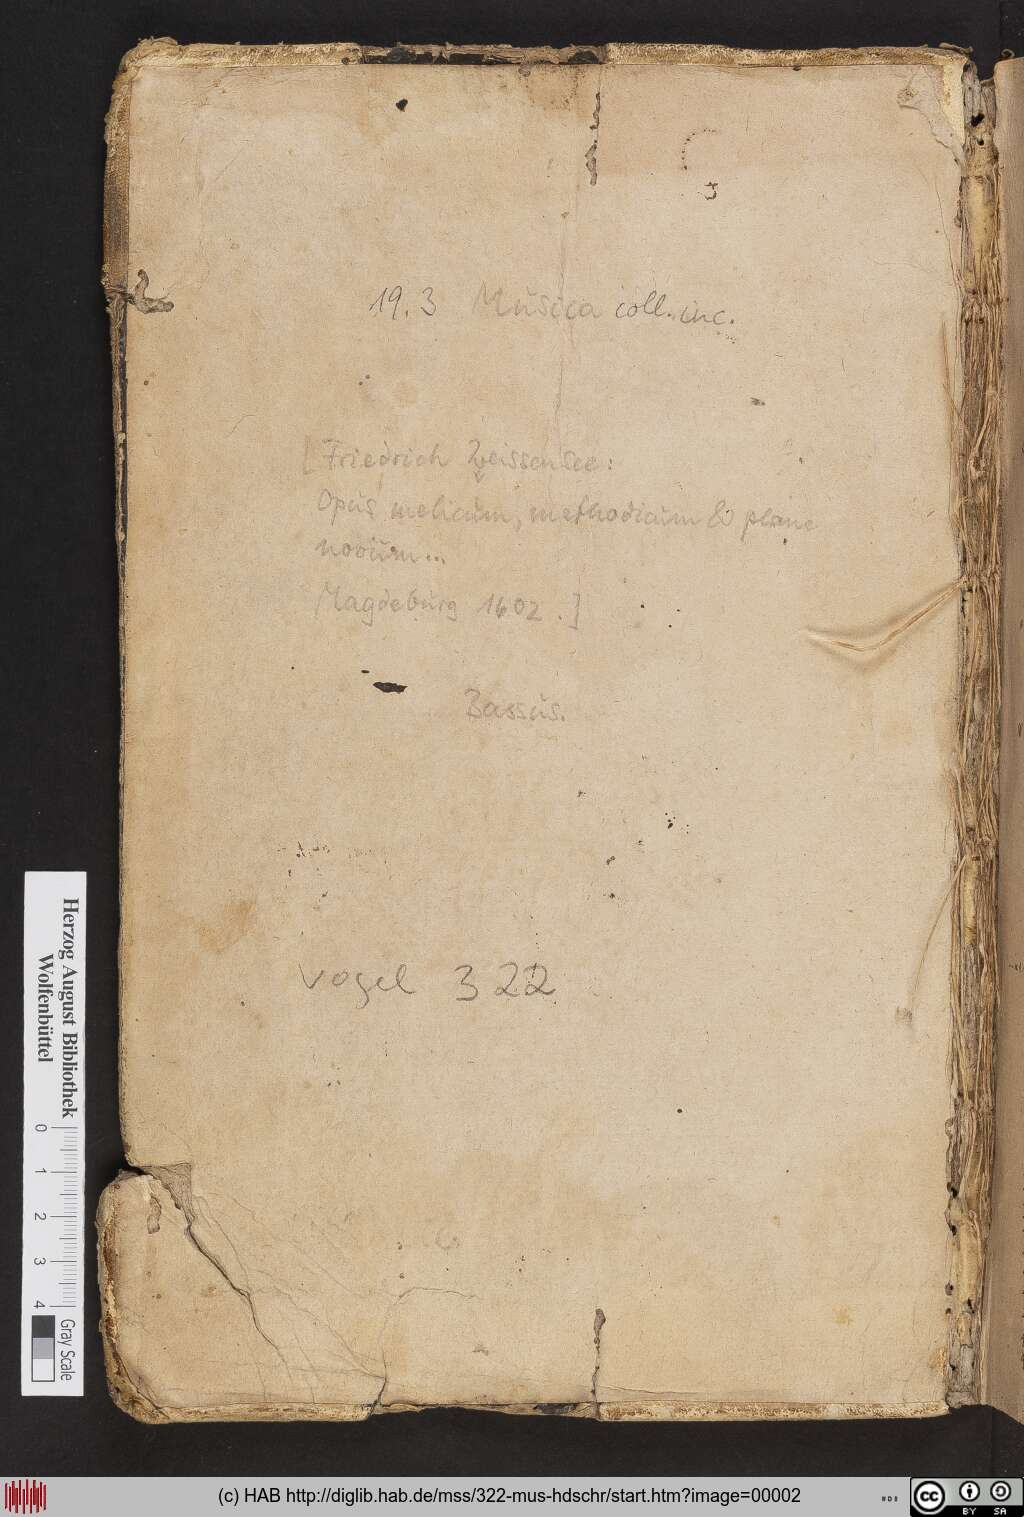 19.3 Musica coll. inc.
[Friedrich Weissensee:
Opus melicum, methodicum & plane
novum...
Magdeburg 1602.]
Bassus.
Vogel 322
Herzog August Bibliothek
Wolfenbüttel
0 1 2 3 4
Gray Scale
(c) HAB http://diglib.hab.de/mss/322-mus-hdschr/start.htm?image=00002
cc BY SA